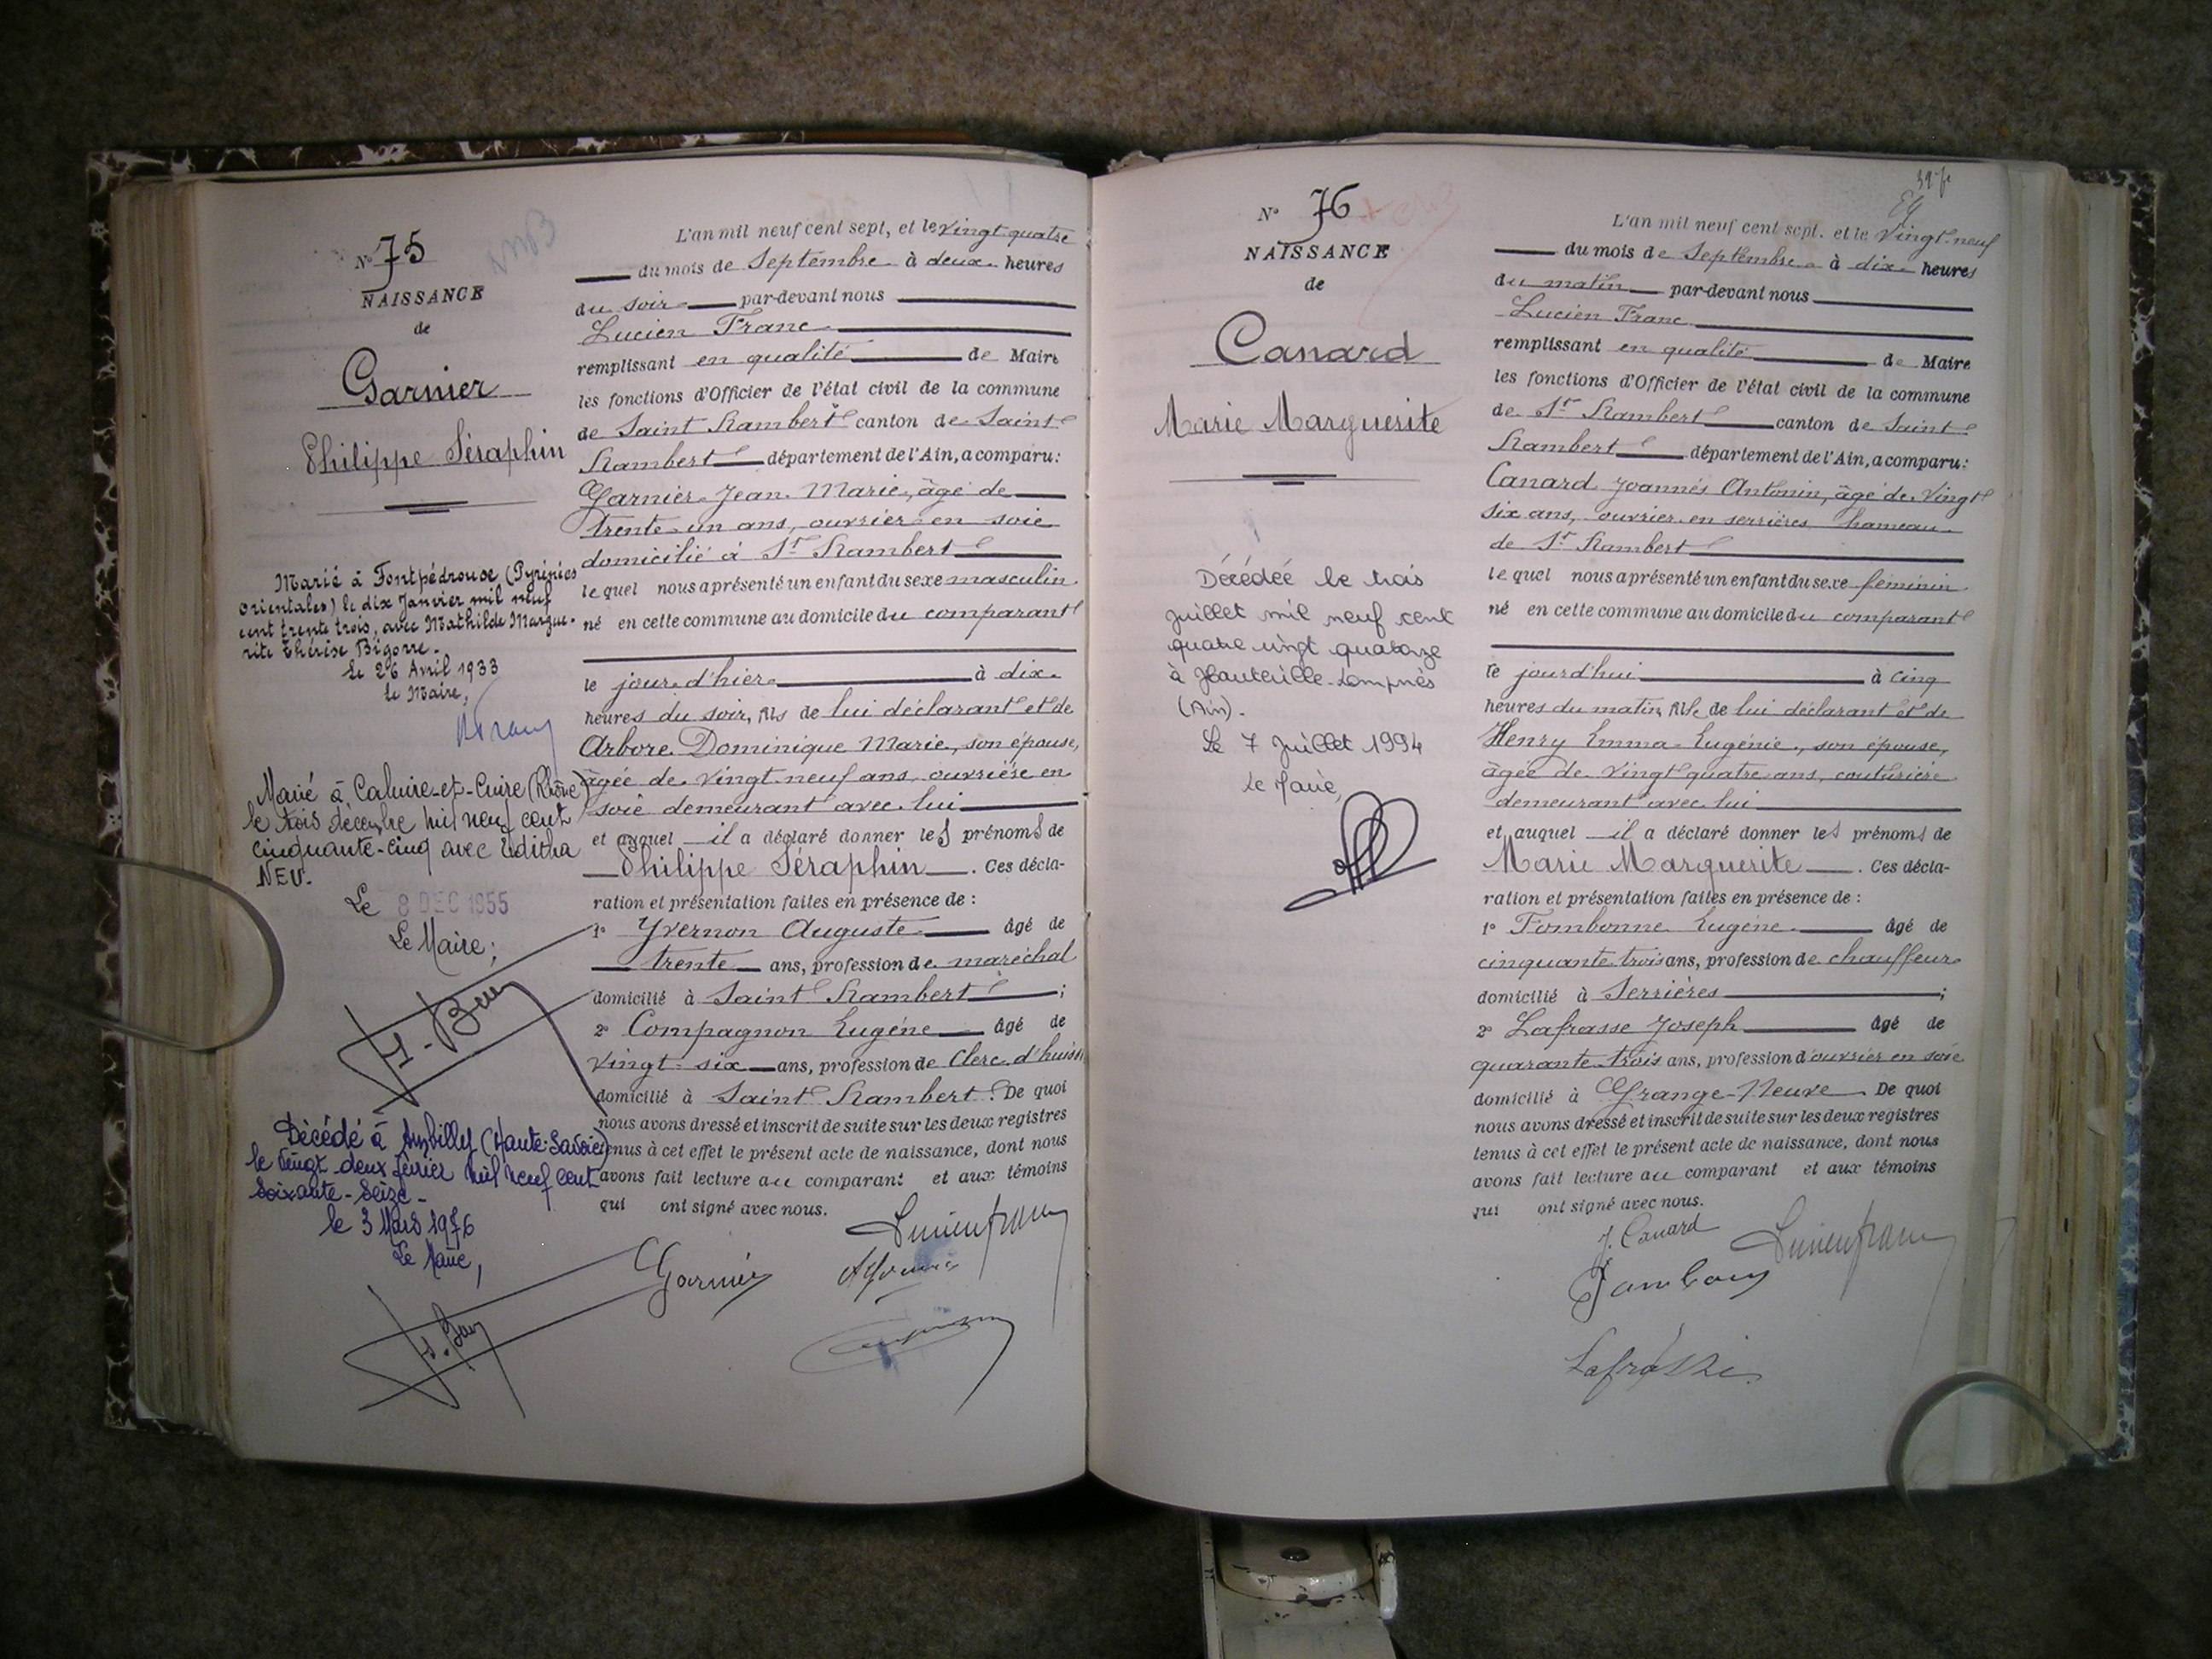 N° 75
NAISSANCE
de
Garnier
Philippe Séraphin
Marié à Fontpédrouse (Pyrénées
Orientales) le dix Janvier mil neuf
cent trente trois, avec Mathilde Margue-
rite Thérèse Bigorre.
le 26 Avril 1933
le Maire,
Marié à Caluire-et-Cuire (Rhône)
le trois décembre mil neuf cent
cinquante-cinq avec Editha
NEU.
Le 8 DEC 1955
Le Maire;
Décédé à Ambilly (Haute-Savoie)
le vingt-deux février mil neuf cent
soixante-seize-
le 3 Mars 1976
Le Maire,
L'an mil neuf cent sept, et le vingt-quatre
du mois de Septembre à deux heures
du soir par-devant nous
Lucien Franc
remplissant en qualité de Maire
les fonctions d'Officier de l'état civil de la commune
de Saint Rambert canton de Saint
Rambert département de l'Ain, a comparu:
Garnier Jean Marie, âgé de
trente-un ans, ouvrier en soie
domicilié à St Rambert
lequel nous a présenté un enfant du sexe masculin
né en cette commune au domicile du comparant
le jour d'hier à dix
heures du soir, fils de lui déclarant et de
Arbore Dominique Marie, son épouse,
âgée de vingt-neuf ans, ouvrière en
soie demeurant avec lui
et auquel il a déclaré donner les prénoms de
Philippe Séraphin. Ces décla-
ration et présentation faites en présence de :
1° Yvernon Auguste âgé de
trente ans, profession de maréchal
domicilié à Saint Rambert ;
2° Compagnon Eugène âgé de
vingt-six ans, profession de Clerc d'huissi
domicilié à Saint Rambert. De quoi
nous avons dressé et inscrit de suite sur les deux registres
tenus à cet effet le présent acte de naissance, dont nous
avons fait lecture au comparant et aux témoins
qui ont signé avec nous.
Lucien Franc
Garnier
N° 76
NAISSANCE
de
Canard
Marie Marguerite
Décédée le trois
juillet mil neuf cent
quatre vingt quatorze
à Hauteville-Lompnès
(Ain).
Le 7 Juillet 1994
Le Maire,
L'an mil neuf cent sept. et le vingt-neuf
du mois de Septembre à dix heures
du matin par-devant nous
Lucien Franc
remplissant en qualité de Maire
les fonctions d'Officier de l'état civil de la commune
de St Rambert canton de Saint
Rambert département de l'Ain, a comparu:
Canard Joannès Antonin, âgé de vingt
six ans, ouvrier en serrières hameau
de St Rambert
lequel nous a présenté un enfant du sexe féminin
né en cette commune au domicile du comparant
le jourd'hui à cinq
heures du matin, fille de lui déclarant et de
Henry Emma Eugénie, son épouse,
âgée de vingt quatre ans, couturière
demeurant avec lui
et auquel il a déclaré donner les prénoms de
Marie Marguerite. Ces décla-
ration et présentation faites en présence de :
1° Fombonne Eugène âgé de
cinquante trois ans, profession de chauffeur
domicilié à Serrières ;
2° Lafrasse Joseph âgé de
quarante-trois ans, profession d'ouvrier en soie
domicilié à Grange-Neuve De quoi
nous avons dressé et inscrit de suite sur les deux registres
tenus à cet effet le présent acte de naissance, dont nous
avons fait lecture au comparant et aux témoins
qui ont signé avec nous.
J. Canard
Lucien Franc